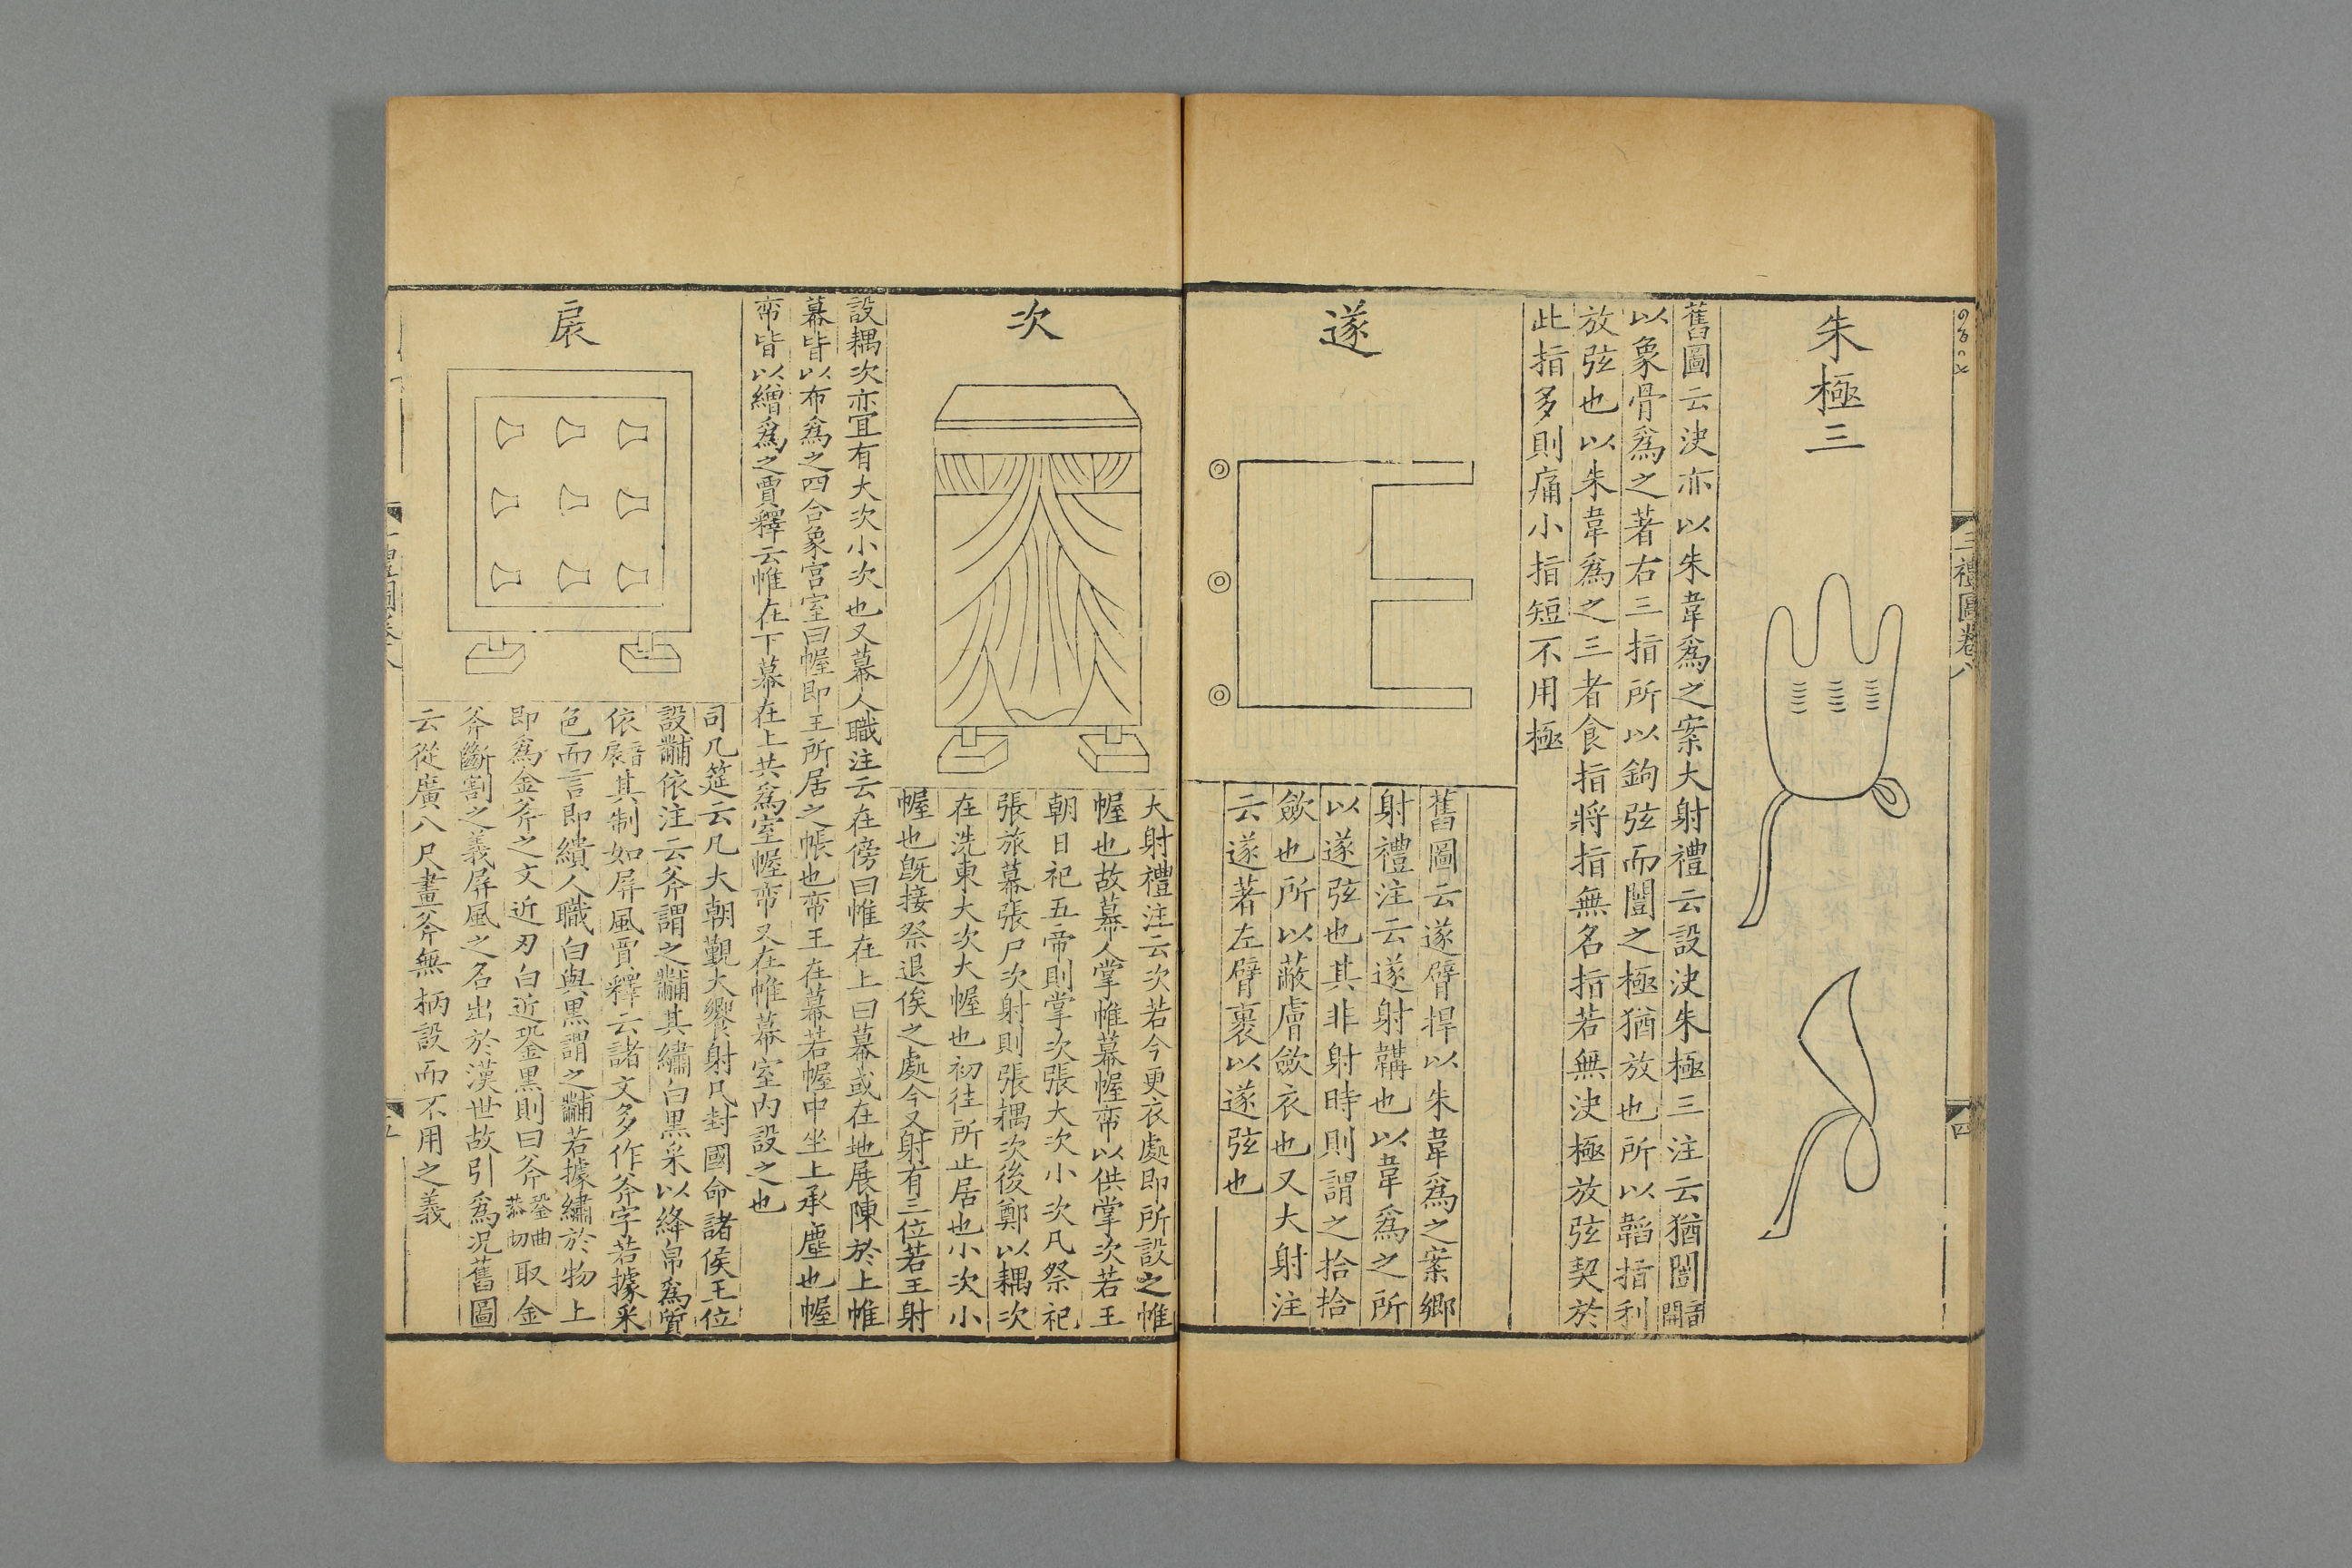 三禮圖卷八
四
朱極三
舊圖云決亦以朱韋爲之案大射禮云設決朱極三注云猶闓音開
以象骨爲之著右三指所以鉤弦而闓之極猶放也所以韜指利
放弦也以朱韋爲之三者食指將指無名指若無決極放弦契於
此指多則痛小指短不用極
遂
舊圖云遂臂捍以朱韋爲之案鄉
射禮注云遂射韝也以韋爲之所
以遂弦也其非射時則謂之拾拾
斂也所以蔽膚斂衣也又大射注
云遂著左臂裹以遂弦也
次
大射禮注云次若今更衣處即所設之帷
幄也故幕人掌帷幕幄帟以供掌次若王
朝日祀五帝則掌次張大次小次凡祭祀
張旅幕張尸次射則張耦次後鄭以耦次
在洗東大次大幄也初往所止居也小次小
幄也旣接祭退俟之處今又射有三位若王射
設耦次亦宜有大次小次也又幕人職注云在傍曰帷在上曰幕或在地展陳於上帷
幕皆以布爲之四合象宮室曰幄即王所居之帳也帟王在幕若幄中坐上承塵也幄
帟皆以繒爲之賈釋云帷在下幕在上共爲室幄帟又在帷幕室內設之也
扆
司几筵云凡大朝覲大饗射凡封國命諸侯王位
設黼依注云斧謂之黼其繡白黑采以絳帛爲質
依音扆其制如屏風賈釋云諸文多作斧字若據采
色而言即繢人職白與黑謂之黼若據繡於物上
即爲金斧之文近刃白近銎黑則曰斧銎曲恭切取金
斧斷割之義屏風之名出於漢世故引爲況舊圖
云從廣八尺畫斧無柄設而不用之義